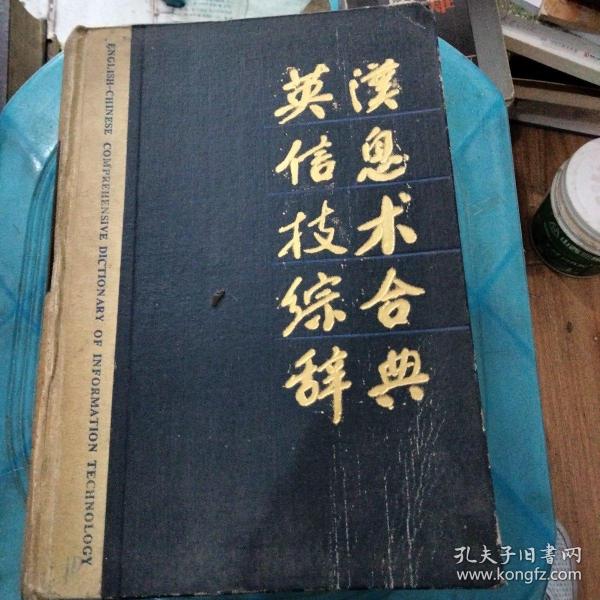 英漢
信息
技术
综合
辞典
ENGLISH-CHINESE COMPREHENSIVE DICTIONARY OF INFORMATION TECHNOLOGY
孔夫子旧書网
www.kongfz.com